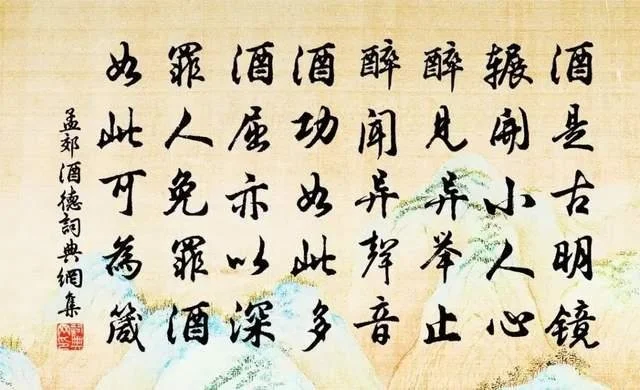 酒是古明镜
辗開小人心
醉见异举止
醉聞异聲音
酒功如此多
酒屈亦以深
罪人免罪酒
如此可為箴
孟郊酒德詞典網集